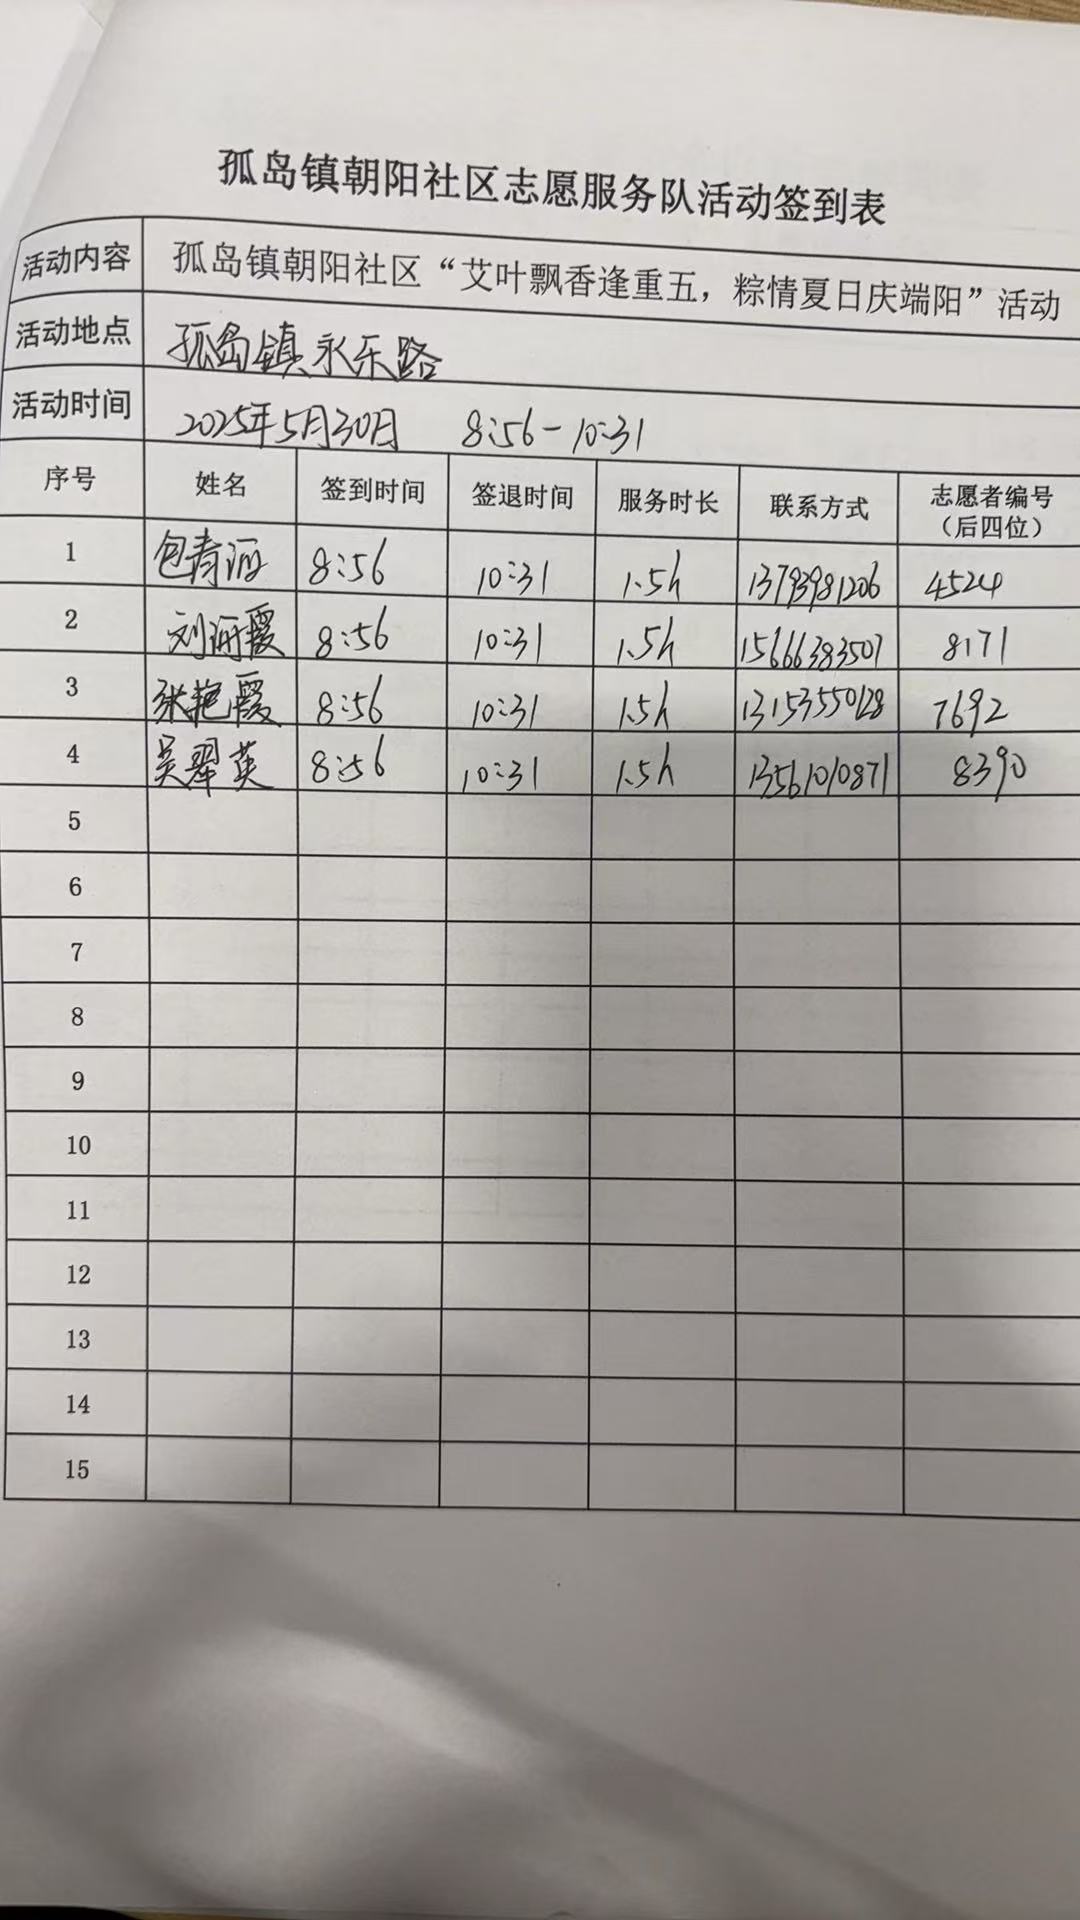 孤岛镇朝阳社区志愿服务队活动签到表
活动内容 孤岛镇朝阳社区“艾叶飘香逢重五，粽情夏日庆端阳”活动
活动地点 孤岛镇永乐路
活动时间 2025年5月30日 8:56-10:31
序号 姓名 签到时间 签退时间 服务时长 联系方式 志愿者编号（后四位）
1 包青 8:56 10:31 1.5h 13793981206 4524
2 刘 霞 8:56 10:31 1.5h 15666383507 8171
3 张艳霞 8:56 10:31 1.5h 13153550128 7692
4 吴翠英 8:56 10:31 1.5h 13561010871 8390
5
6
7
8
9
10
11
12
13
14
15